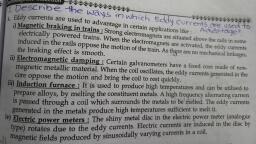 Describe the ways in which Eddy currents are used to
advantage
1. Eddy currents are used to advantage in certain applications like
i) Magnetic braking in trains : Strong electromagnets are situated above the rails in some
electrically powered trains. When the electromagnets are activated, the eddy currents
induced in the rails oppose the motion of the train. As there are no mechanical linkages,
the braking effect is smooth.
ii) Electromagnetic damping : Certain galvanometers have a fixed core made of non-
magnetic metallic material. When the coil oscillates, the eddy currents generated in the
core oppose the motion and bring the coil to rest quickly.
iii) Induction furnace : It is used to produce high temperatures and can be utilised to
prepare alloys, by melting the constituent metals. A high frequency alternating current
is passed through a coil which surrounds the metals to be melted. The eddy currents
generated in the metals produce high temperatures sufficient to melt it.
iv) Electric power meters : The shiny metal disc in the electric power meter (analogue
type) rotates due to the eddy currents. Electric currents are induced in the disc by
magnetic fields produced by sinusoidally varying currents in a coil.